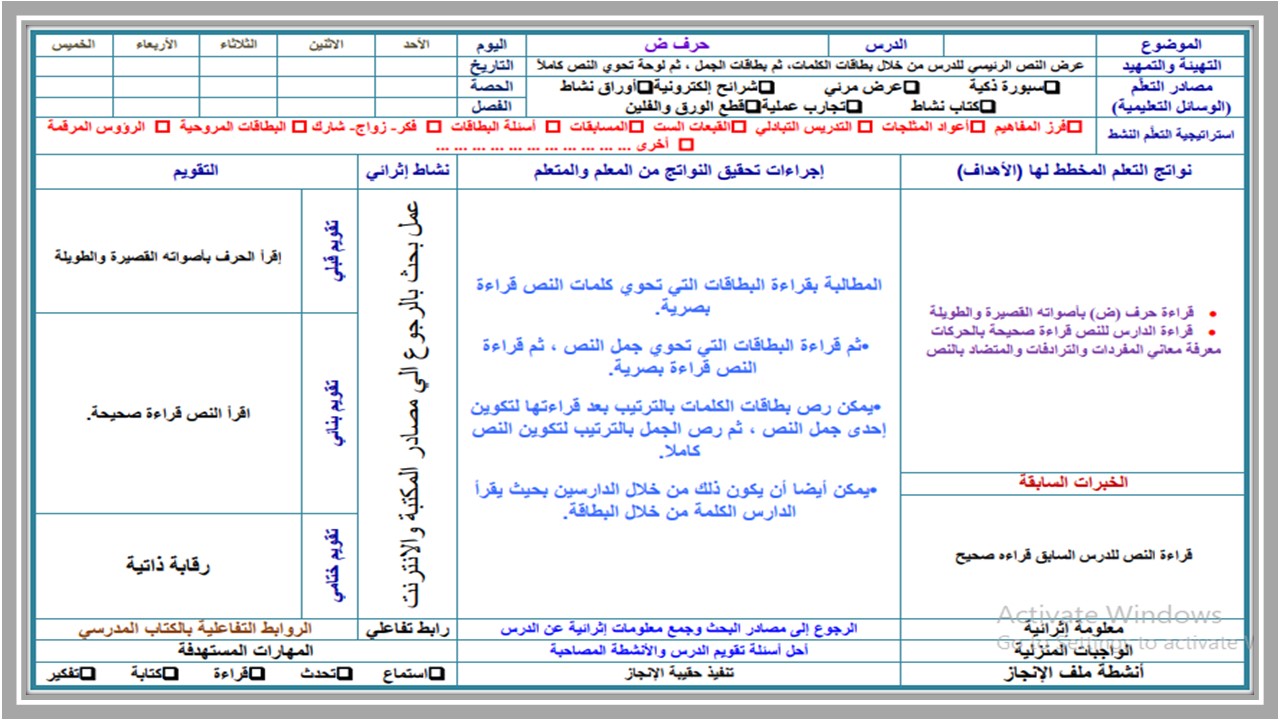 الموضوع
الدرس
حرف ض
اليوم
الأحد
الاثنين
الثلاثاء
الأربعاء
الخميس
التهيئة والتمهيد
عرض النص الرئيسي للدرس من خلال بطاقات الكلمات، ثم بطاقات الجمل ، ثم لوحة تحوي النص كاملاً
التاريخ
مصادر التعلم
(الوسائل التعليمية)
سبورة ذكية عرض مرئي شرائح إلكترونية أوراق نشاط
الحصة
كتاب نشاط تجارب عملية قطع الورق والفلين
الفصل
استراتيجية التعلم النشط
فرز المفاهيم أعواد المثلجات التدريس التبادلي القبعات الست المسابقات أسئلة البطاقات فكر- زواج- شارك البطاقات المروحية الرؤوس المرقمة
أخرى ... ... ... ... ... ... ... ... ... ... ...
نواتج التعلم المخطط لها (الأهداف)
إجراءات تحقيق النواتج من المعلم والمتعلم
نشاط إثرائي
التقويم
• قراءة حرف (ض) بأصواته القصيرة والطويلة
• قراءة الدارس للنص قراءة صحيحة بالحركات
معرفة معاني المفردات والترادفات والمتضاد بالنص
الخبرات السابقة
قراءة النص للدرس السابق قراءه صحيح
المطالبة بقراءة البطاقات التي تحوي كلمات النص قراءة
بصرية.
•ثم قراءة البطاقات التي تحوي جمل النص ، ثم قراءة
النص قراءة بصرية.
•يمكن رص بطاقات الكلمات بالترتيب بعد قراءتها لتكوين
إحدى جمل النص ، ثم رص الجمل بالترتيب لتكوين النص
كاملا.
•يمكن أيضا أن يكون ذلك من خلال الدارسين بحيث يقرأ
الدارس الكلمة من خلال البطاقة.
عمل بحث بالرجوع الي مصادر المكتبة والانترنت
تقويم قبلي
إقرأ الحرف بأصواته القصيرة والطويلة
تقويم بنائي
اقرأ النص قراءة صحيحة.
تقويم ختامي
رقابة ذاتية
معلومة إثرائية
الرجوع إلى مصادر البحث وجمع معلومات إثرائية عن الدرس
رابط تفاعلي
الروابط التفاعلية بالكتاب المدرسي
الواجبات المنزلية
أحل أسئلة تقويم الدرس والأنشطة المصاحبة
المهارات المستهدفة
أنشطة ملف الإنجاز
تنفيذ حقيبة الإنجاز
استماع تحدث قراءة كتابة تفكير
Activate Windows
Go to Settings to activate